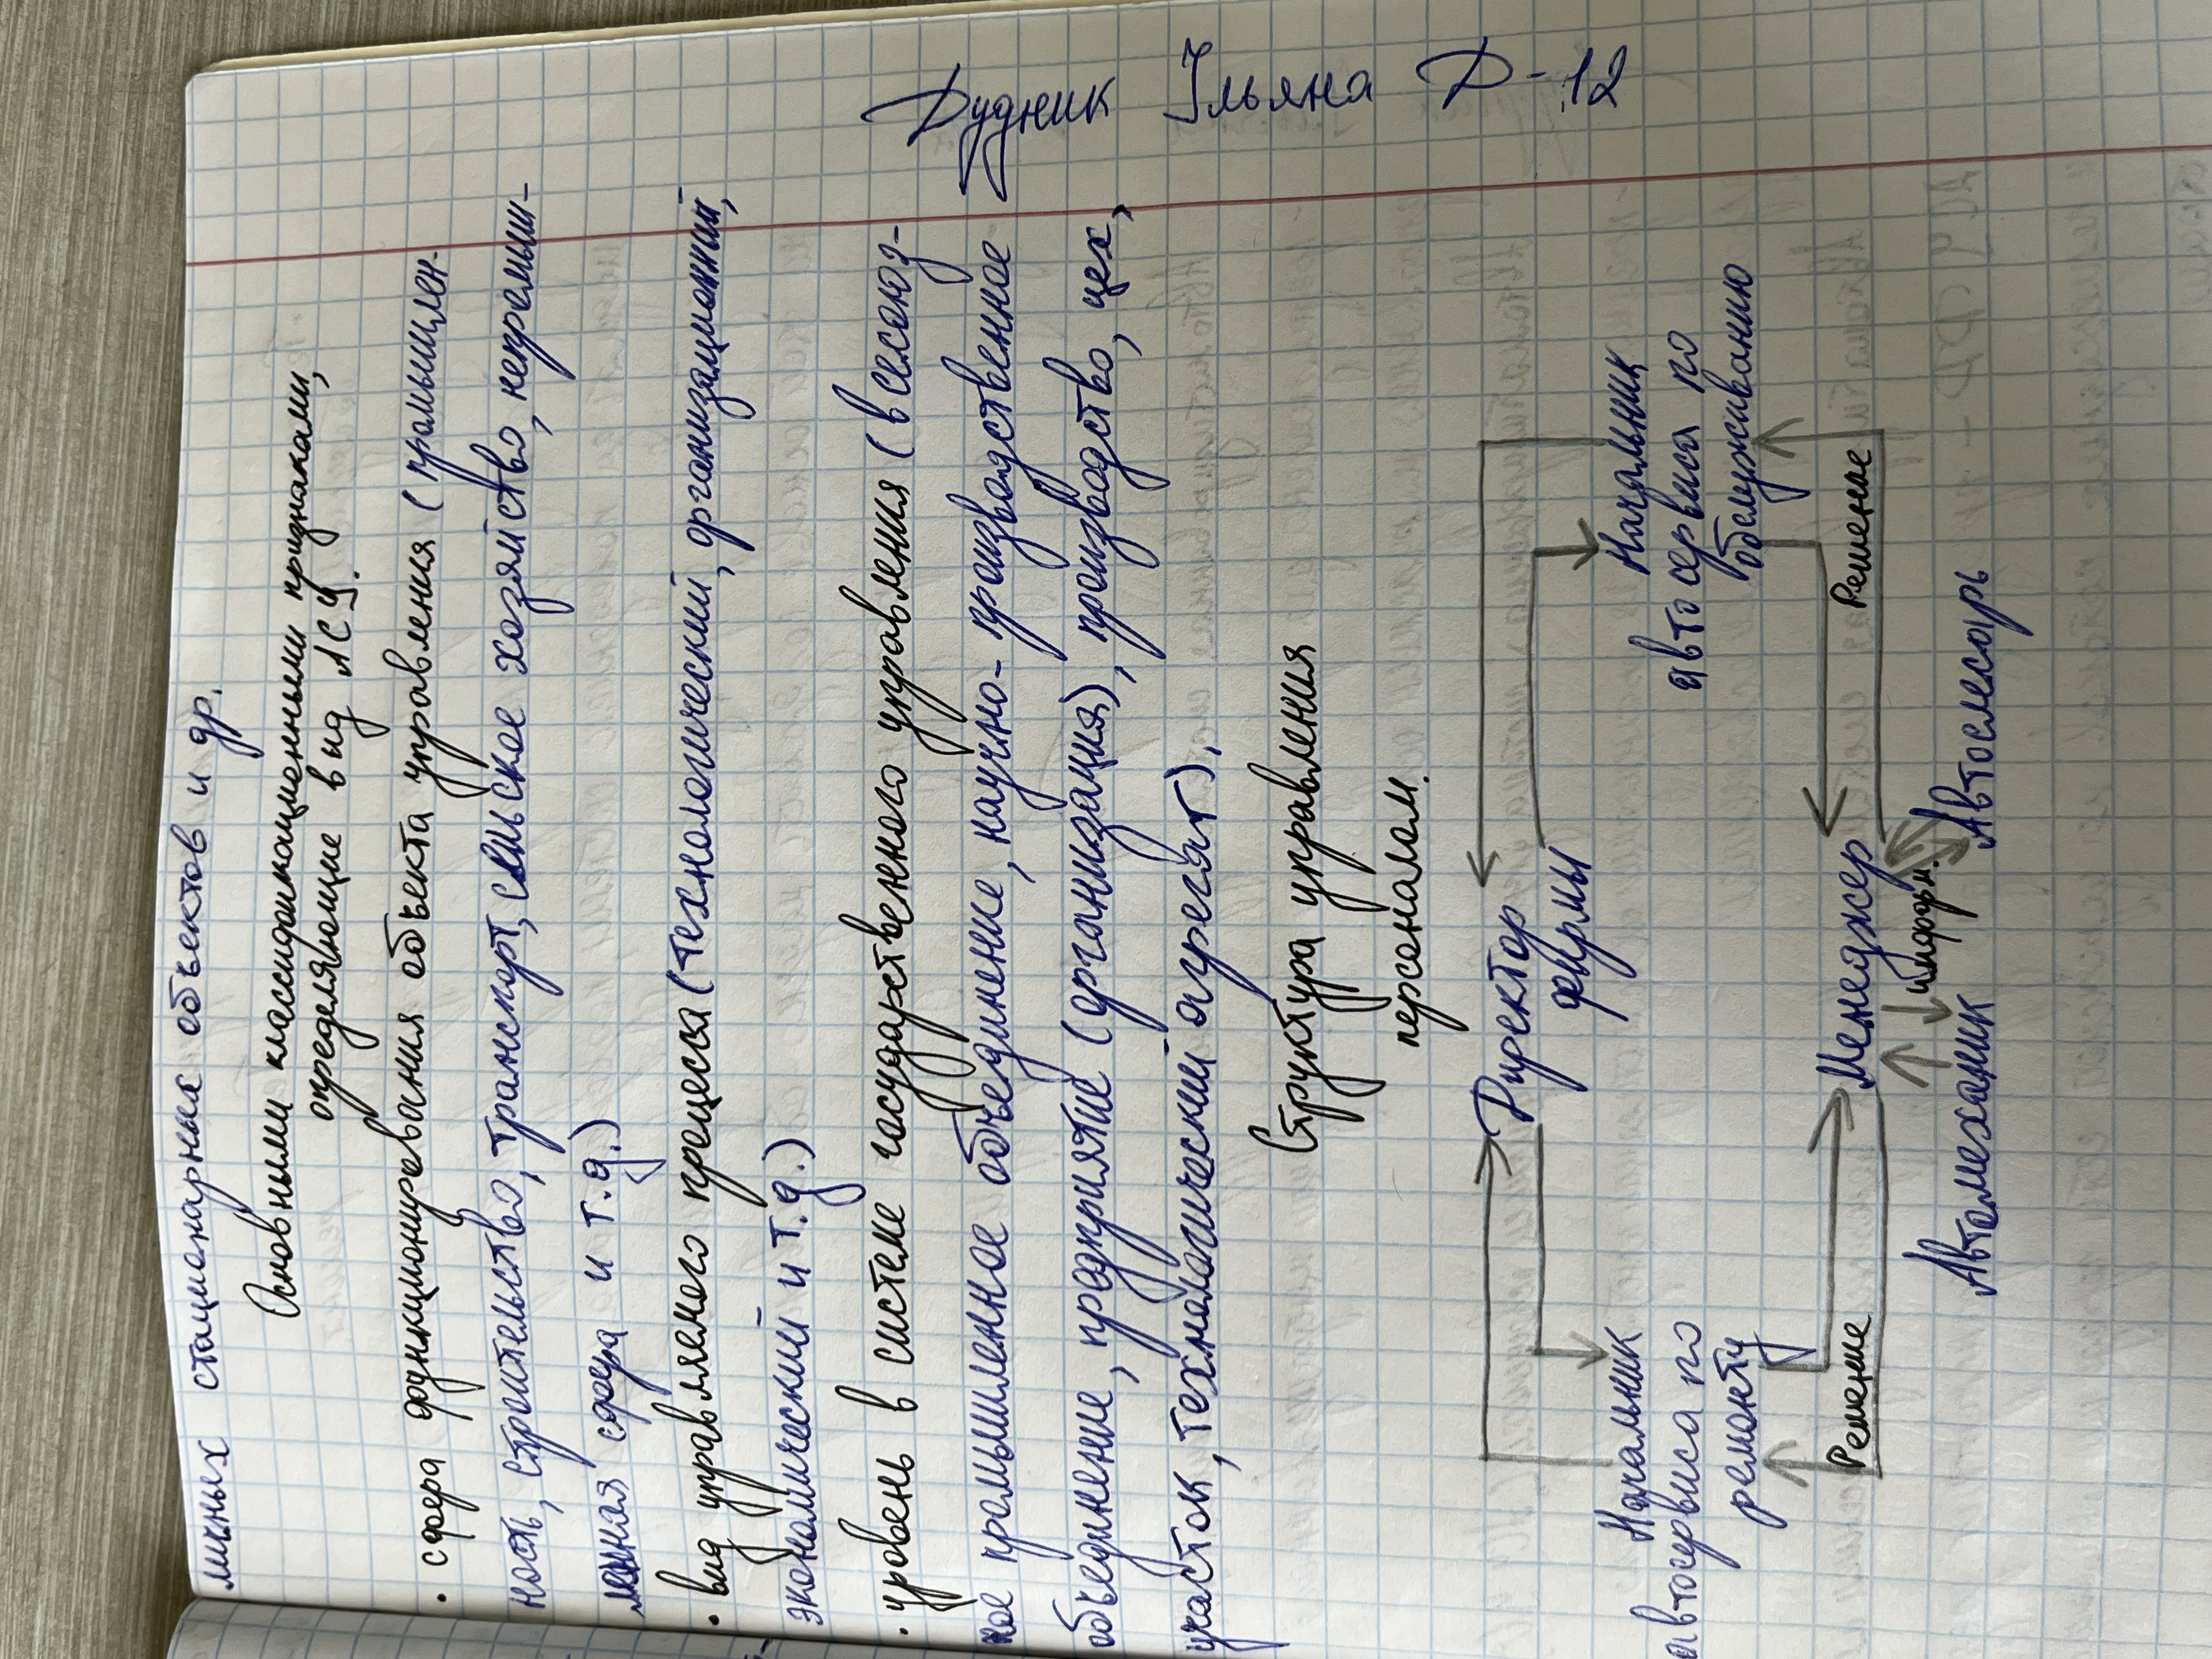 личных стационарных объектов и др.
Основными классификационными признаками,
определяющие вид АСУ.
• сфера функционирования объекта управления (промышлен-
ность, строительство, транспорт, сельское хозяйство, непромыш-
ленная сфера и т.д.)
• вид управляемого процесса (технологический, организационный,
экономический и т.д.)
• уровень в системе государственного управления (всесоюз-
ное промышленное объединение, научно-производственное
объединение, предприятие (организация), производство, цех,
участок, технологический агрегат).
Дудник Ульяна Д-12
Структура управления
персоналом.
Директор
фирмы
Начальник
автосервиса по
ремонту
Начальник
автосервиса по
обслуживанию
Решение
Менеджер
Решение
информ.
Автомеханик
Автослесарь